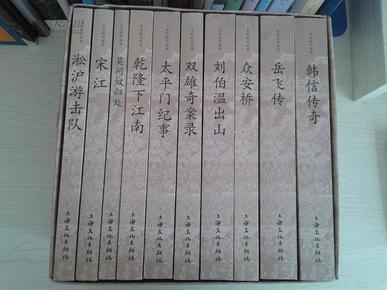 淞沪游击队
宋江
莫问奴归处
乾隆下江南
太平门纪事
双雄奇案录
刘伯温出山
众安桥
岳飞传
韩信传奇
上海文化出版社
上海文化出版社
上海文化出版社
上海文化出版社
上海文化出版社
上海文化出版社
上海文化出版社
上海文化出版社
上海文化出版社
上海文化出版社